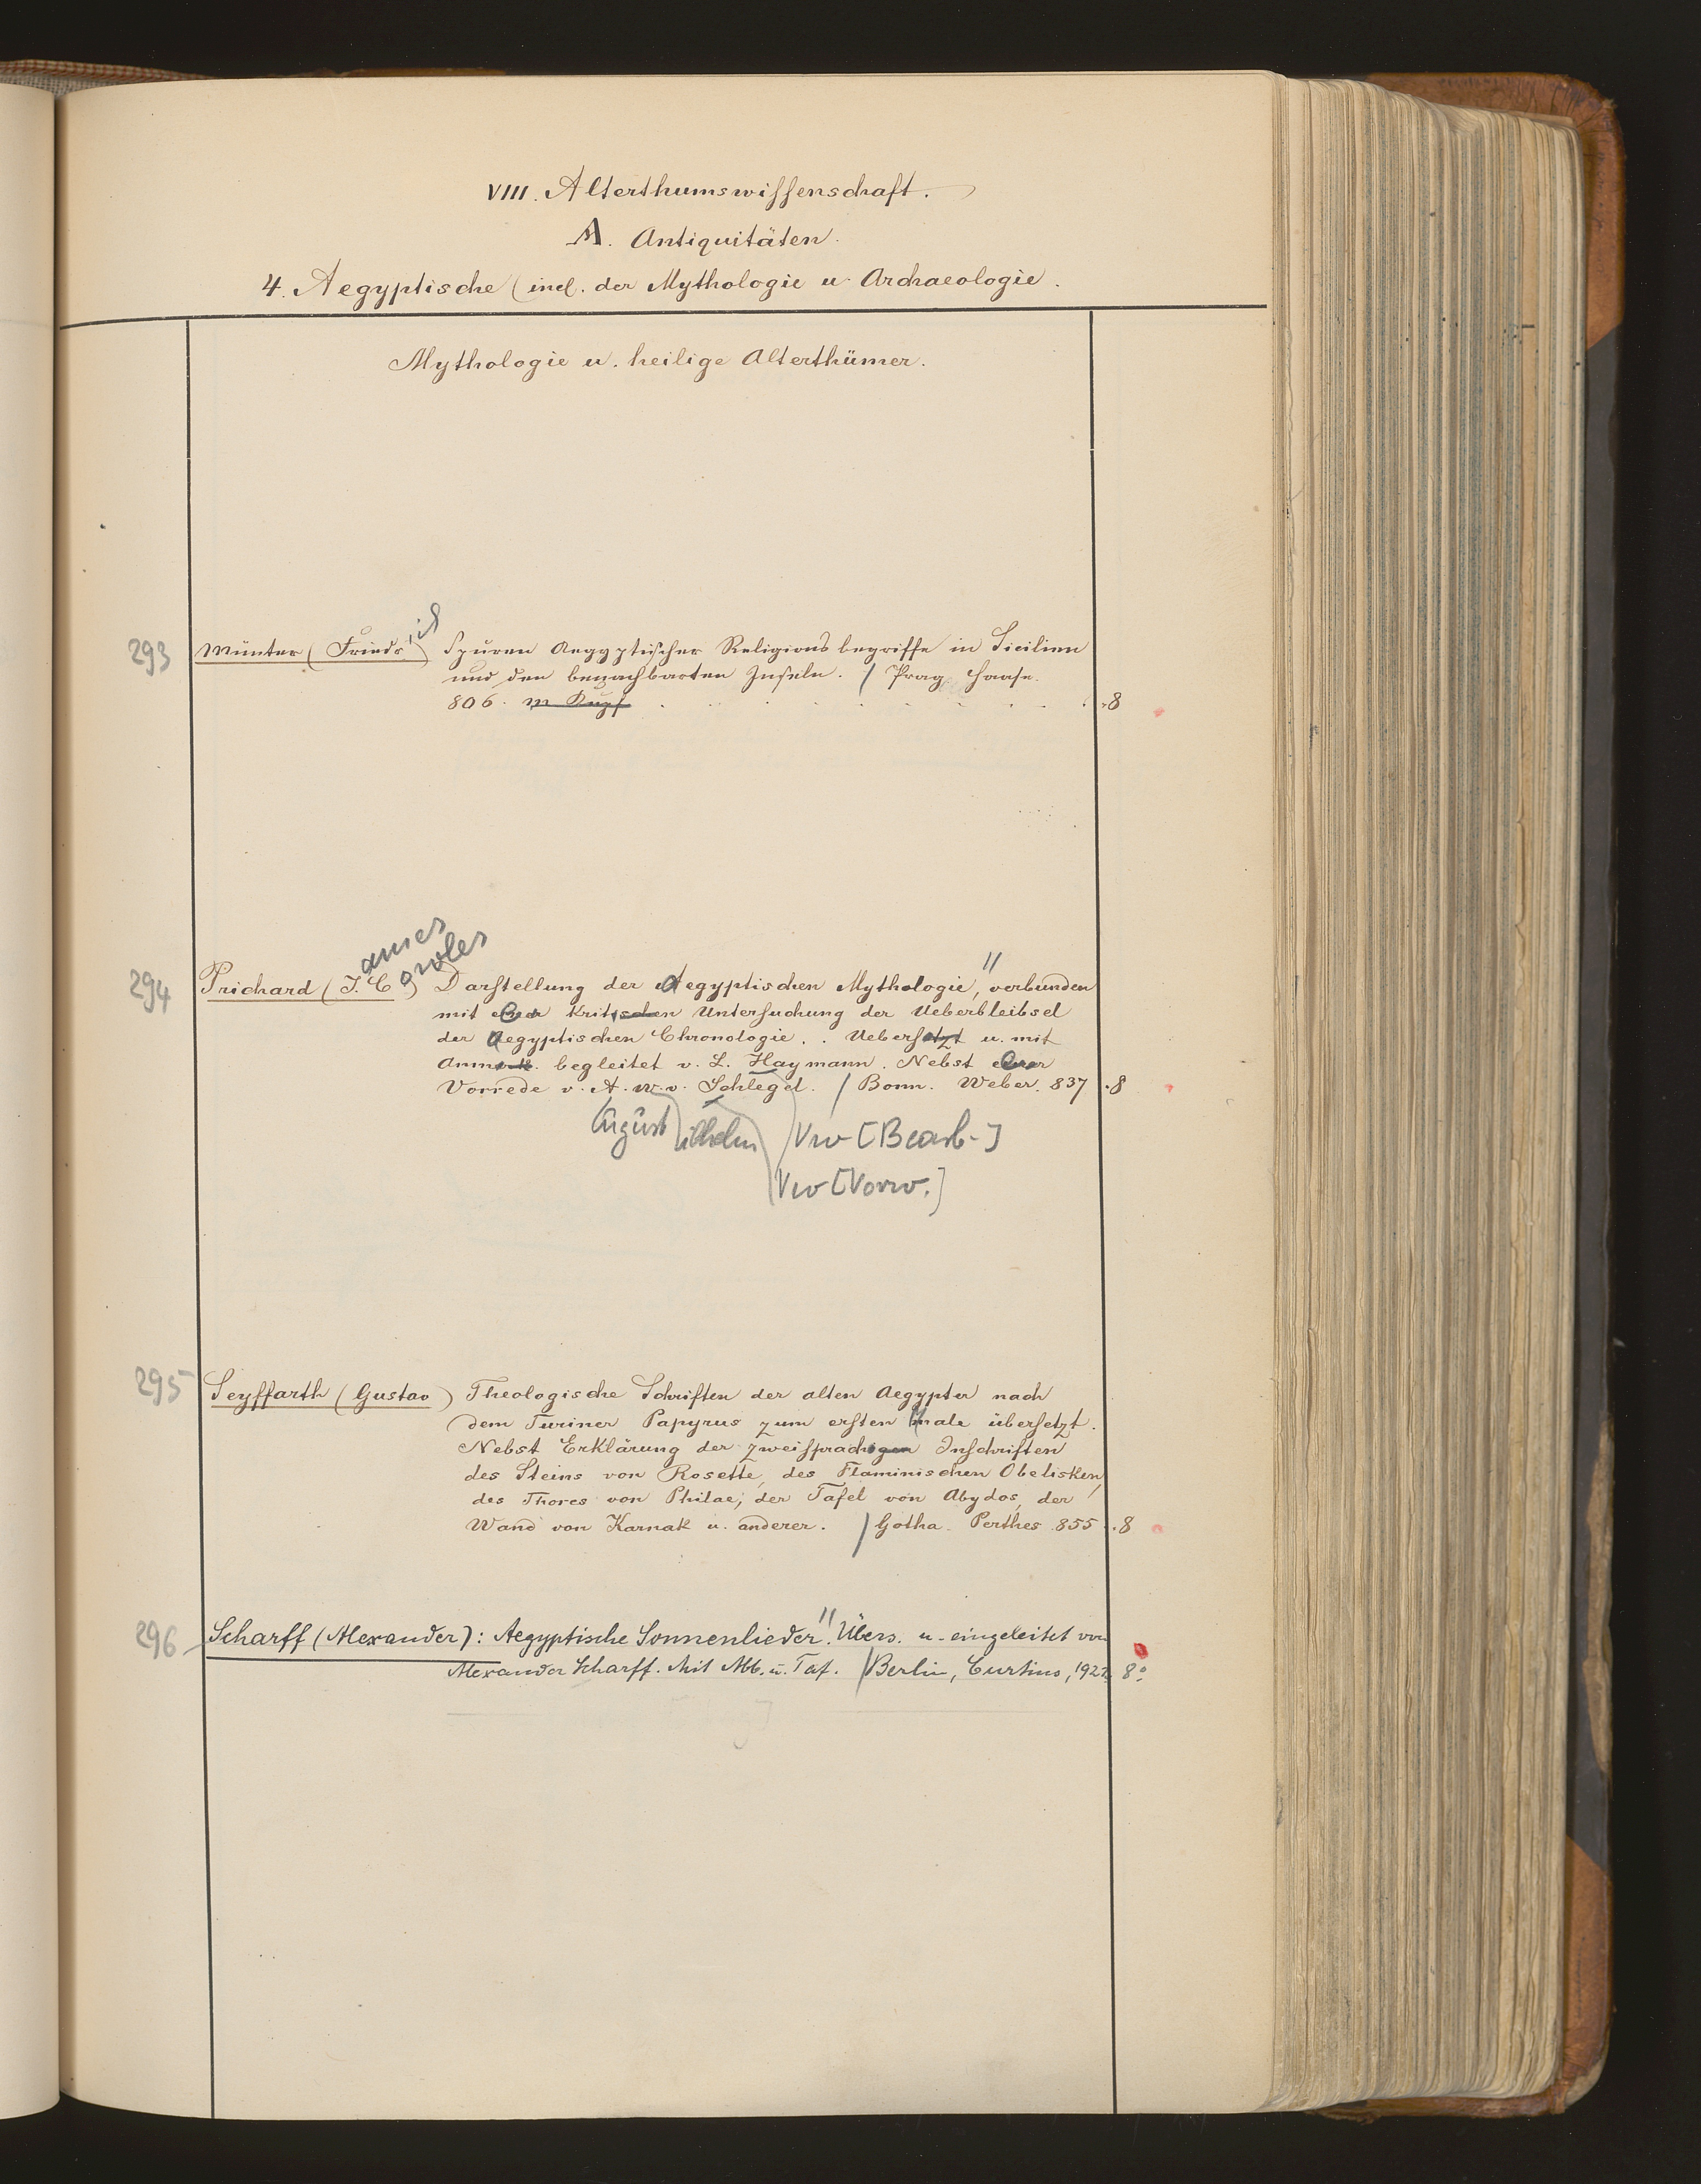 VIII. Alterthumswissenschaft.
A. Antiquitäten.
4. Aegyptische (incl. der Mythologie u. Archaeologie.
Mythologie u. heilige Alterthümer.
293 Münter (Friedr.) ich Spuren Aegyptischer Religionsbegriffe in Sicilien
und den benachbarten Inseln. / Prag Haase.
806. m Kupf . . . . . . . 8
ames owles
294 Prichard (J. C.) Darstellung der Aegyptischen Mythologie, " verbunden
mit einer kritischen Untersuchung der Ueberbleibsel
der Aegyptischen Chronologie. . Uebersetzt u. mit
Anmerk. begleitet v. L. Haymann. Nebst einer
Vorrede v. A. W. v. Schlegel. / Bonn. Weber. 837 . 8
August ilhelm Vw [Bearb.]
Vw [Vorw.]
295 Seyffarth (Gustav) Theologische Schriften der alten Aegypter nach
dem Turiner Papyrus zum ersten Male übersetzt.
Nebst Erklärung der zweisprachigen Inschriften
des Steins von Rosette, des Flaminischen Obelisken,
des Thores von Philae, der Tafel von Abydos, der
Wand von Karnak u. anderer. / Gotha. Perthes 855 . 8
296 Scharff (Alexander): Aegyptische Sonnenlieder. " Übers. u. eingeleitet von
Alexander Scharff. Mit Abb. u. Taf. / Berlin, Curtius, 1922. 8°